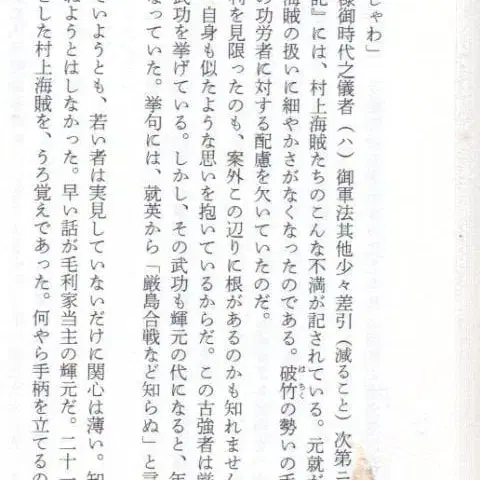 じゃわ」
様御時代之儀者（ハ）御軍法其他少々差引（減ること）次第ニ
記』には、村上海賊たちのこんな不満が記されている。元就が
海賊の扱いに細やかさがなくなったのである。破竹の勢いの
はちく
の功労者に対する配慮を欠いていたのだ。
利を見限ったのも、案外この辺りに根があるのかも知れません
自身も似たような思いを抱いているからだ。この古強者は厳
武功を挙げている。しかし、その武功も輝元の代になると、年
なっていた。挙句には、就英から「厳島合戦など知らぬ」と言
ていようとも、若い者は実見していないだけに関心は薄い。知
ねようとはしなかった。早い話が毛利家当主の輝元だ。二十一
とした村上海賊を、うろ覚えであった。何やら手柄を立てるの